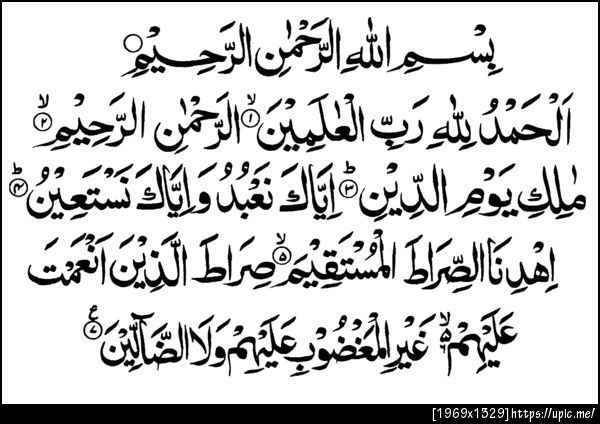 بِسْمِ اللهِ الرَّحْمٰنِ الرَّحِيْمِ
اَلْحَمْدُ لِلّٰهِ رَبِّ الْعٰلَمِيْنَ ۙ﴿۱﴾ الرَّحْمٰنِ الرَّحِيْمِ ۙ﴿۲﴾
مٰلِكِ يَوْمِ الدِّيْنِ ؕ﴿۳﴾ اِيَّاكَ نَعْبُدُ وَ اِيَّاكَ نَسْتَعِيْنُ ؕ﴿۴﴾
اِهْدِنَا الصِّرَاطَ الْمُسْتَقِيْمَ ۙ﴿۵﴾ صِرَاطَ الَّذِيْنَ اَنْعَمْتَ
عَلَيْهِمْ ۙ۬ غَيْرِ الْمَغْضُوْبِ عَلَيْهِمْ وَلَا الضَّآلِّيْنَ ﴿۷﴾ ع
[1969x1329]https://upic.me/